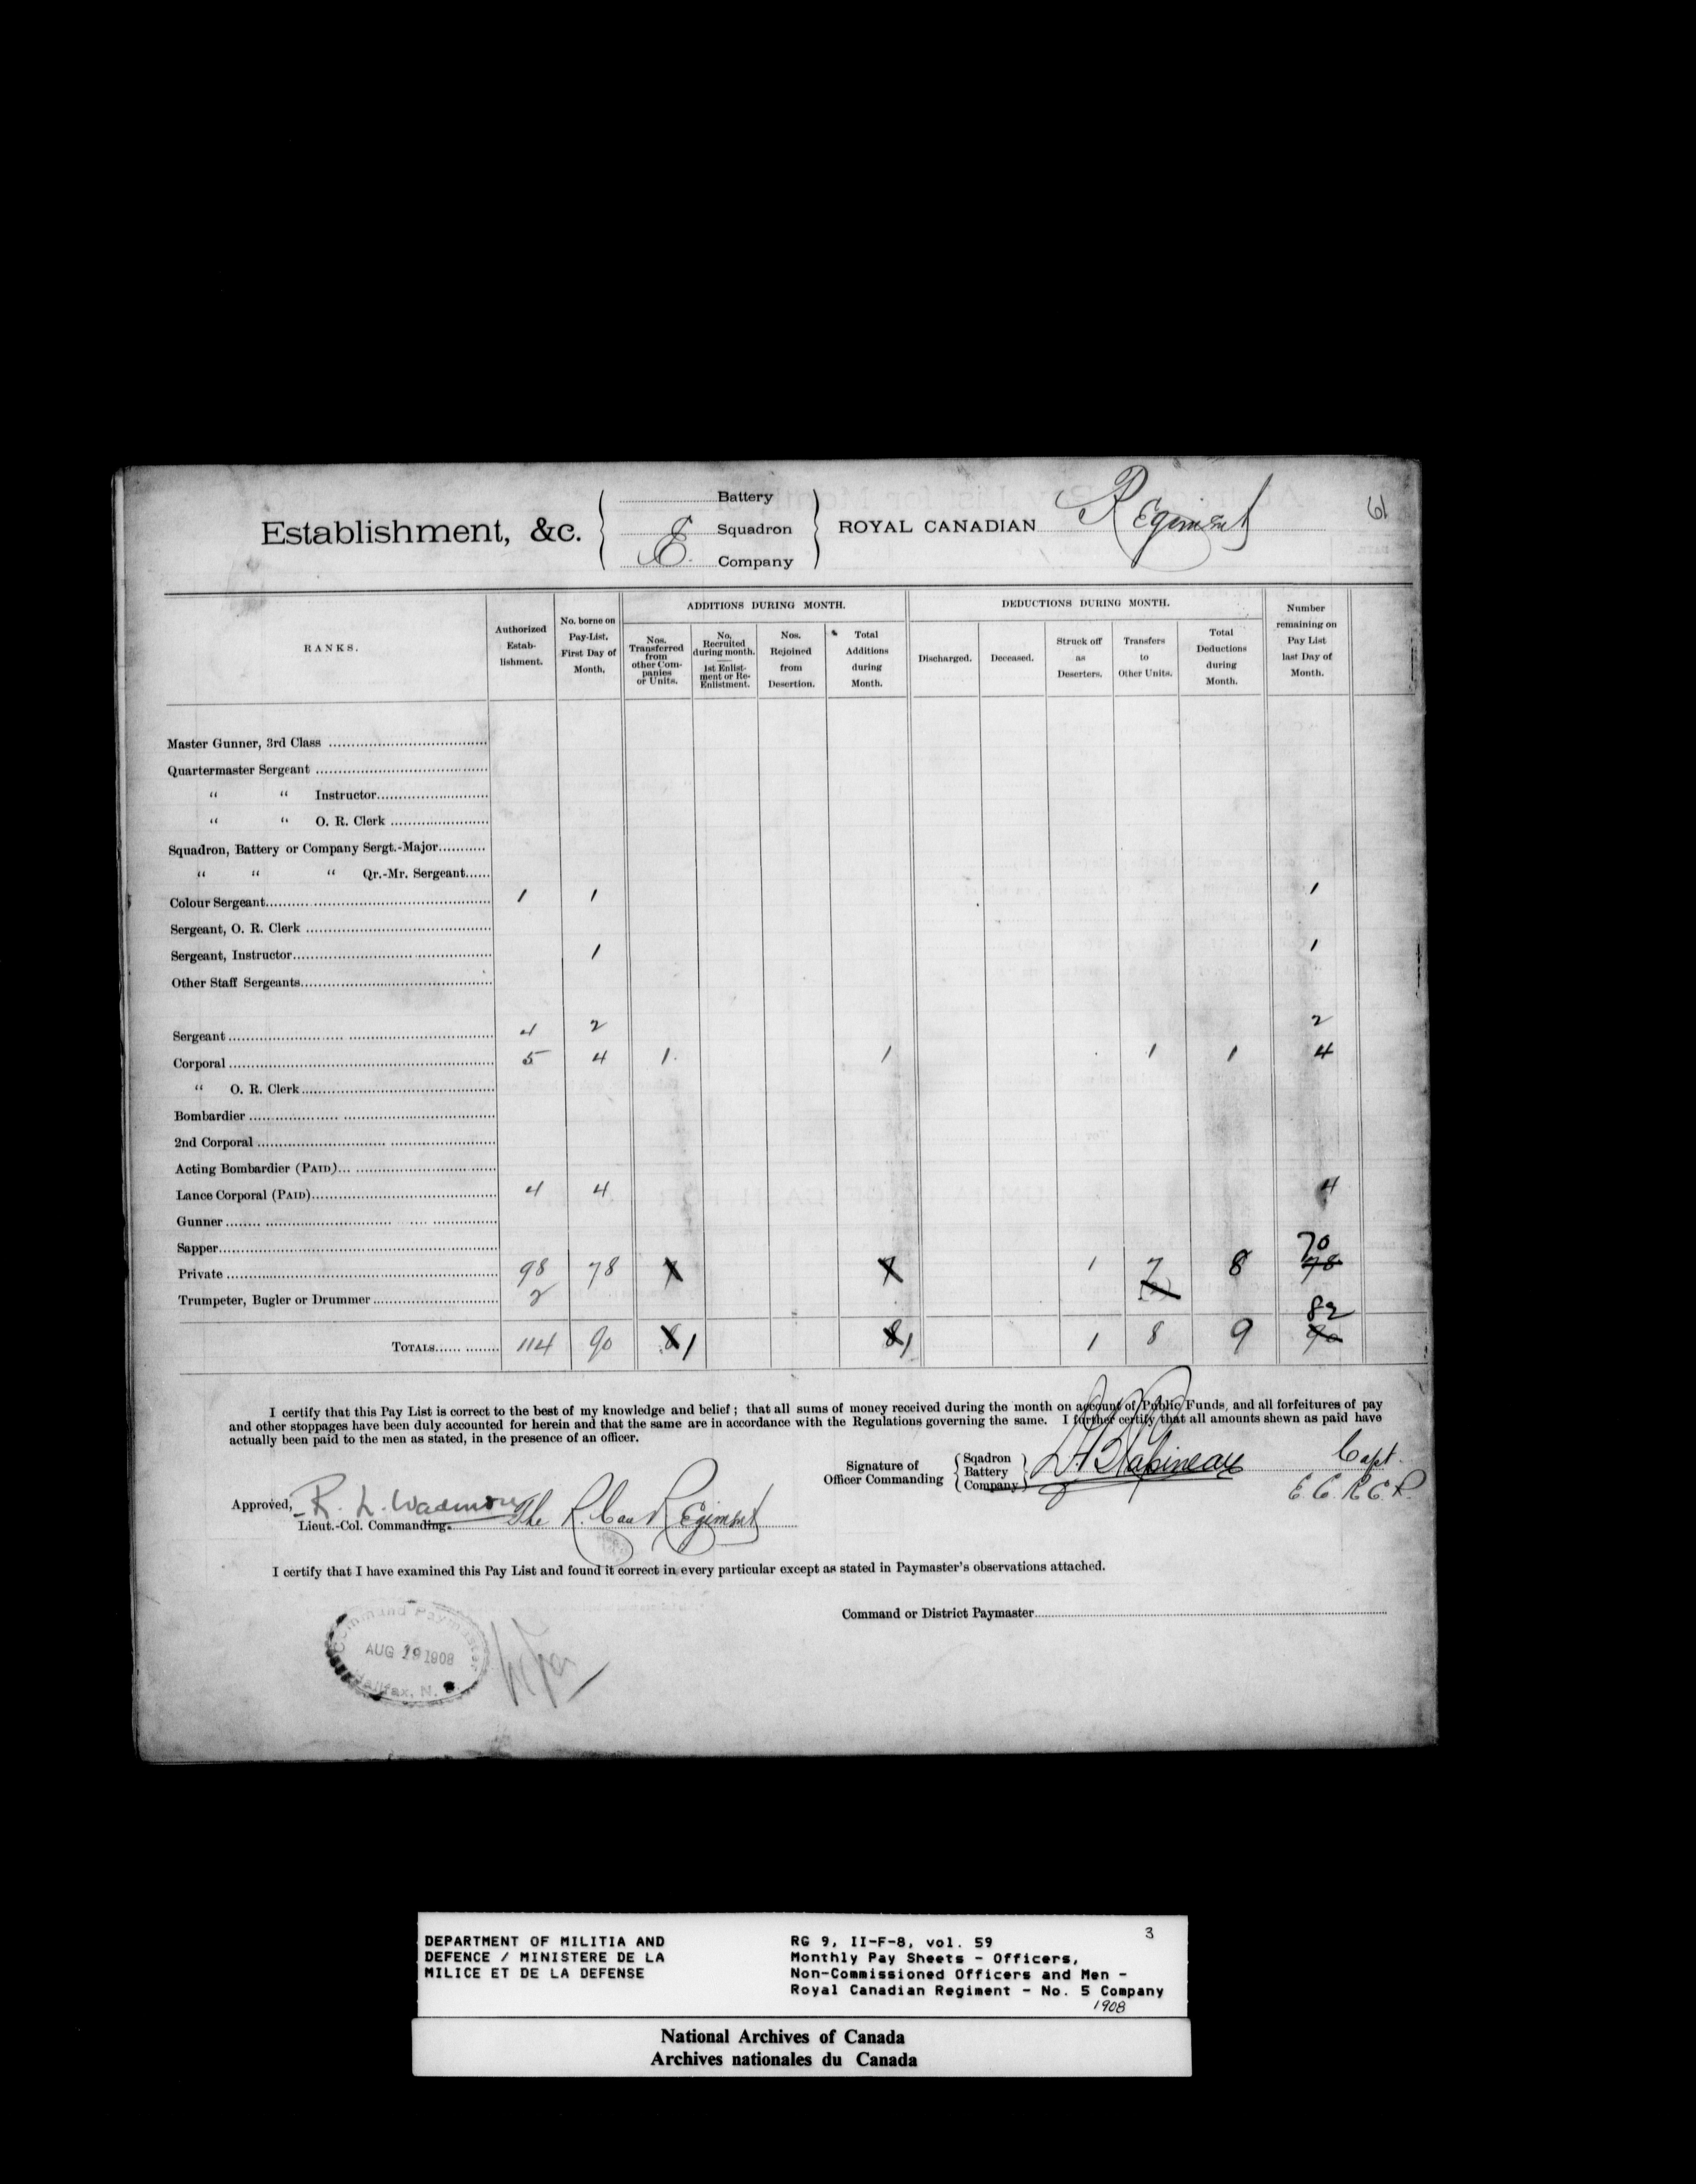 61
Establishment, &c.
Battery
Squadron
E. Company
ROYAL CANADIAN Regiment
RANKS.
Authorized Estab-lishment.
No. borne on Pay-List, First Day of Month.
ADDITIONS DURING MONTH.
Nos. Transferred from other Com-panies or Units.
No. Recruited during month. 1st Enlist-ment or Re-Enlistment.
Nos. Rejoined from Desertion.
Total Additions during Month.
DEDUCTIONS DURING MONTH.
Discharged.
Deceased.
Struck off as Deserters.
Transfers to Other Units.
Total Deductions during Month.
Number remaining on Pay List last Day of Month.
Master Gunner, 3rd Class
Quartermaster Sergeant
“ “ Instructor
“ “ O. R. Clerk
Squadron, Battery or Company Sergt.-Major
“ “ “ Qr.-Mr. Sergeant
Colour Sergeant 1 1 1
Sergeant, O. R. Clerk
Sergeant, Instructor 1 1
Other Staff Sergeants
Sergeant 4 2 2
Corporal 5 4 1 1 1 1 4
“ O. R. Clerk
Bombardier
2nd Corporal
Acting Bombardier (PAID)
Lance Corporal (PAID) 4 4 4
Gunner
Sapper
Private 98 78 1 7 8 70 78
Trumpeter, Bugler or Drummer 2
82
TOTALS 114 90 8 1 8 1 1 8 9 90
I certify that this Pay List is correct to the best of my knowledge and belief ; that all sums of money received during the month on account of Public Funds, and all forfeitures of pay
and other stoppages have been duly accounted for herein and that the same are in accordance with the Regulations governing the same. I further certify that all amounts shewn as paid have
actually been paid to the men as stated, in the presence of an officer.
Signature of Officer Commanding
Sqadron
Battery
Company
Capt.
E. C. R C. R.
Approved, R. L. Wadmore
Lieut.-Col. Commanding. The R. Can Regiment
I certify that I have examined this Pay List and found it correct in every particular except as stated in Paymaster's observations attached.
Command or District Paymaster
Command Paymaster
AUG 29 1908
Halifax, N. S.
DEPARTMENT OF MILITIA AND
DEFENCE / MINISTERE DE LA
MILICE ET DE LA DEFENSE
3
RG 9, II-F-8, vol. 59
Monthly Pay Sheets - Officers,
Non-Commissioned Officers and Men -
Royal Canadian Regiment - No. 5 Company
1908
National Archives of Canada
Archives nationales du Canada